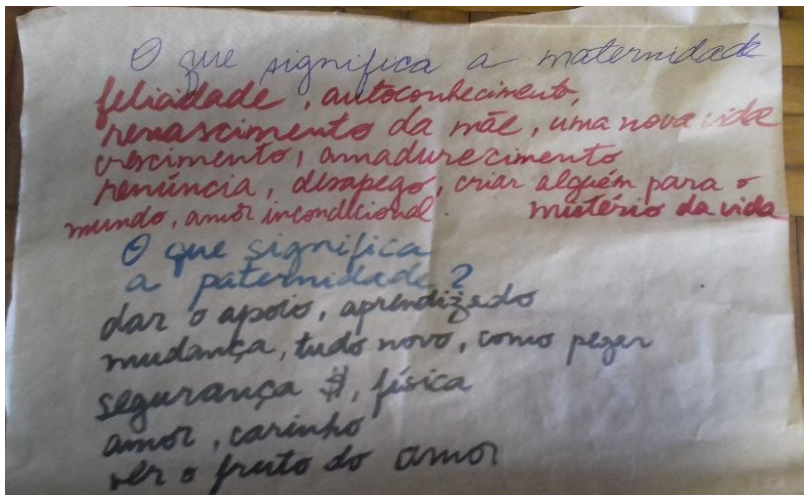 O que significa a maternidade
felicidade, autoconhecimento,
renascimento da mãe, uma nova vida
crescimento, amadurecimento
renúncia, desapego, criar alguém para o
mundo, amor incondicional. mistério da vida
O que significa
a paternidade?
dar o apoio, aprendizado
mudança, tudo novo, como pegar
segurança $, física
amor, carinho
ver o fruto do amor